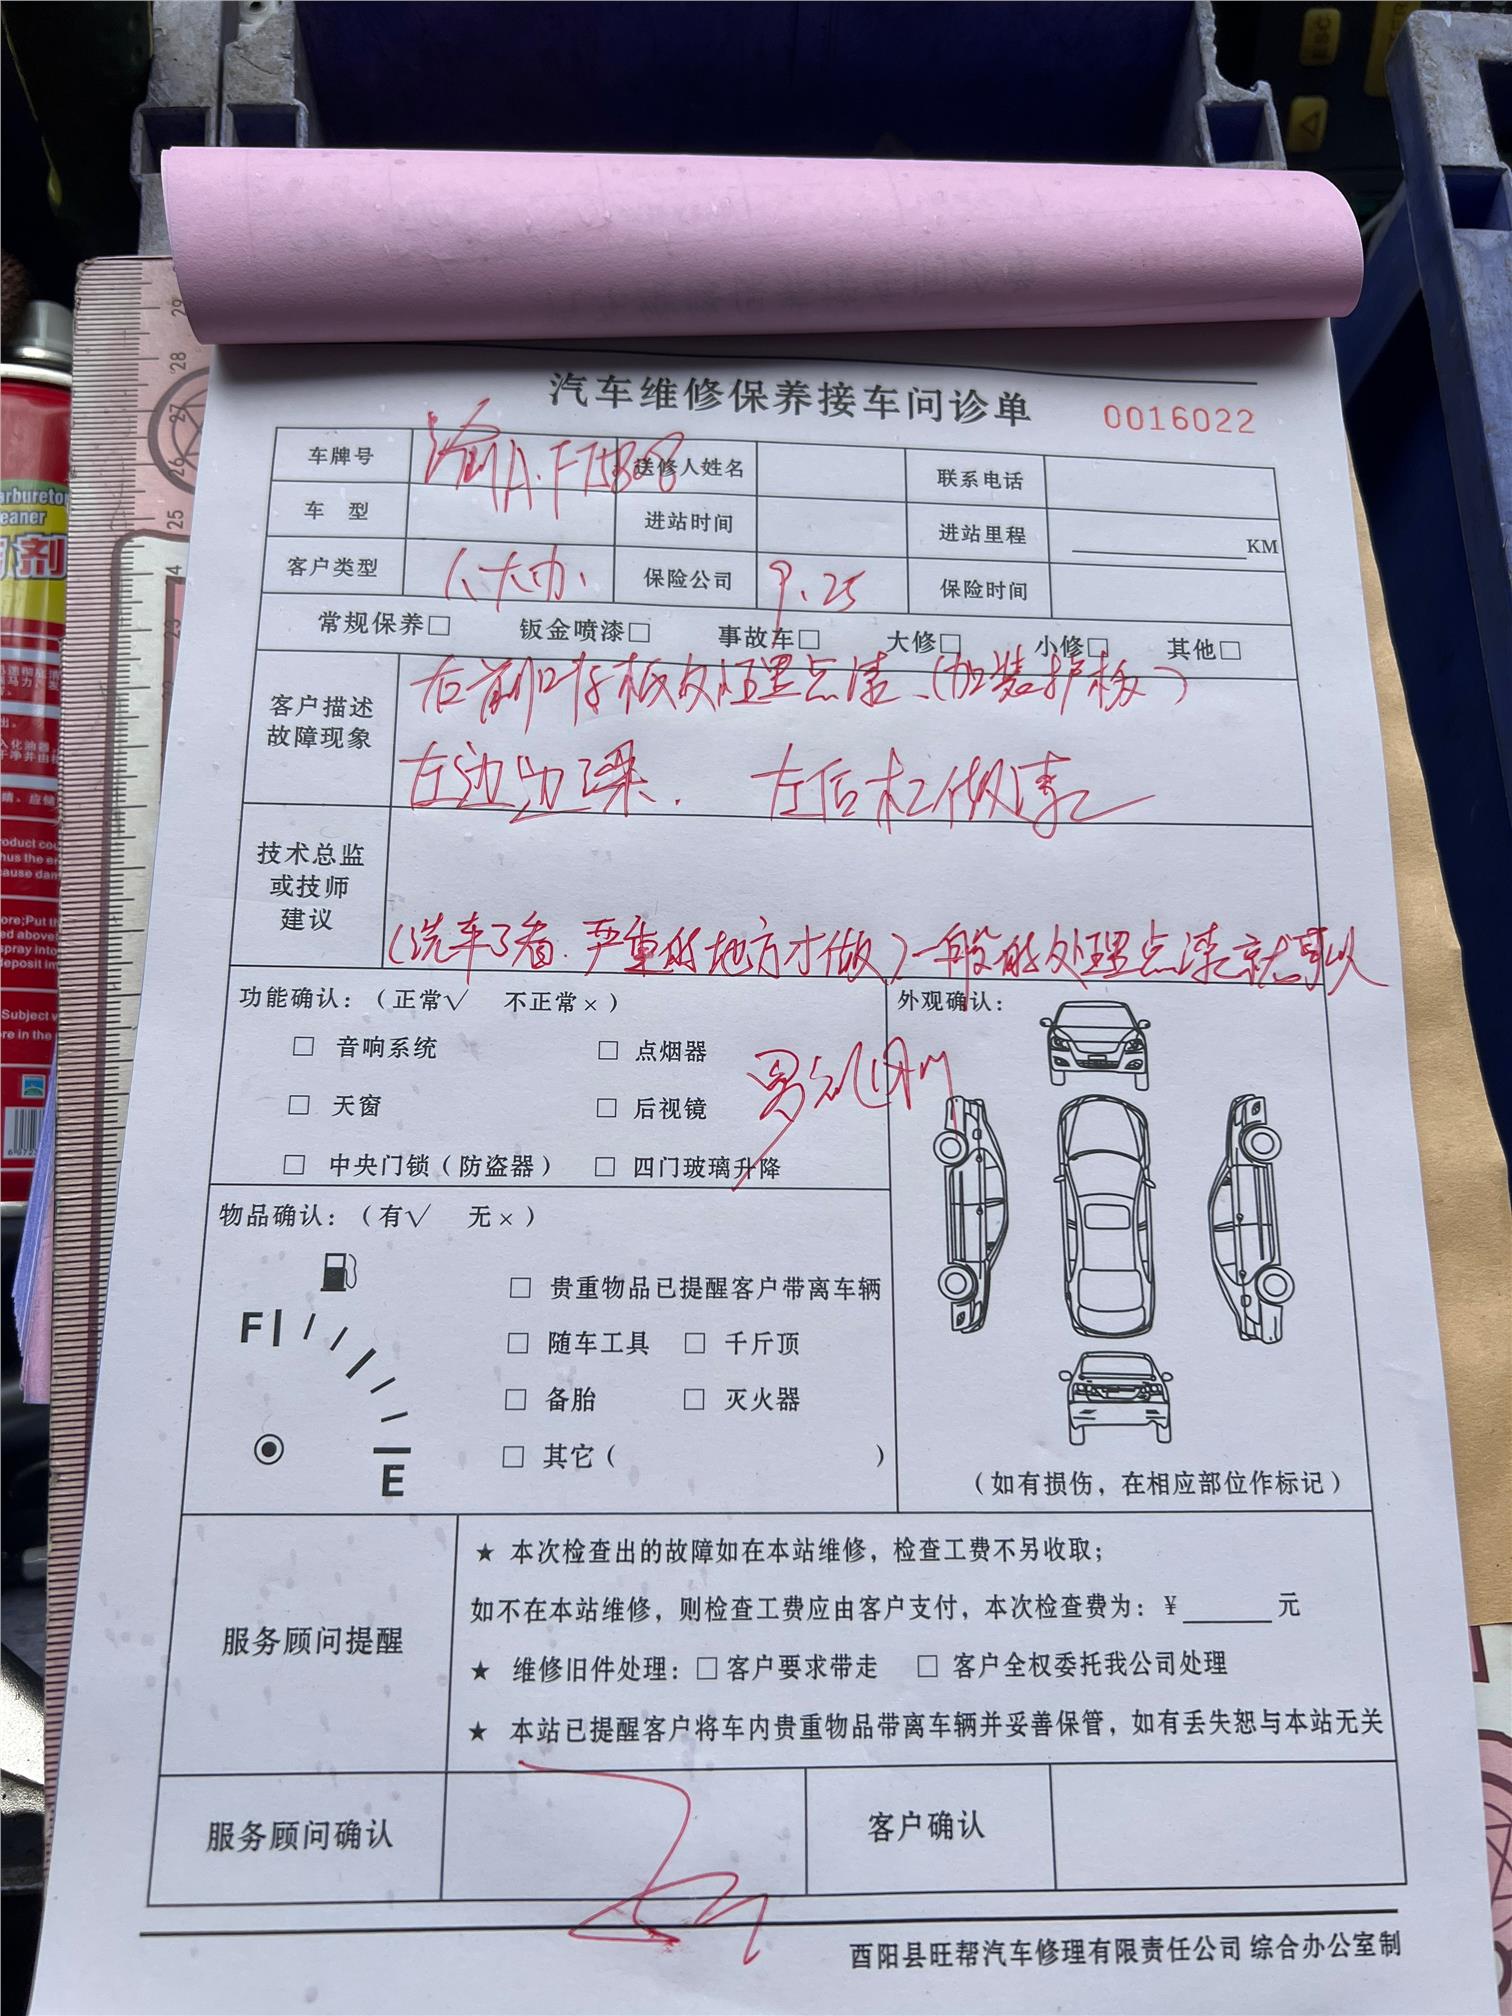 ESC
29
28
27
26
25
24
23
arburetor
eaner
剂
汽车维修保养接车问诊单
0016022
车牌号 渝A·F 送修人姓名 联系电话
车 型 进站时间 进站里程 KM
客户类型 人大办 保险公司 9.25 保险时间
常规保养□ 钣金喷漆□ 事故车□ 大修□ 小修□ 其他□
客户描述
故障现象
右前叶子板处理点漆(加装护板)
左边边梁. 左后杠做漆
技术总监
或技师
建议
(洗车了看.严重的地方才做)一般的处理点漆就可以
功能确认:(正常√ 不正常×)
□ 音响系统 □ 点烟器
□ 天窗 □ 后视镜
□ 中央门锁(防盗器) □ 四门玻璃升降
外观确认:
(如有损伤,在相应部位作标记)
物品确认:(有√ 无×)
F
E
□ 贵重物品已提醒客户带离车辆
□ 随车工具 □ 千斤顶
□ 备胎 □ 灭火器
□ 其它( )
服务顾问提醒
★ 本次检查出的故障如在本站维修,检查工费不另收取;
如不在本站维修,则检查工费应由客户支付,本次检查费为:¥______元
★ 维修旧件处理:□客户要求带走 □ 客户全权委托我公司处理
★ 本站已提醒客户将车内贵重物品带离车辆并妥善保管,如有丢失恕与本站无关
服务顾问确认 客户确认
酉阳县旺帮汽车修理有限责任公司 综合办公室制